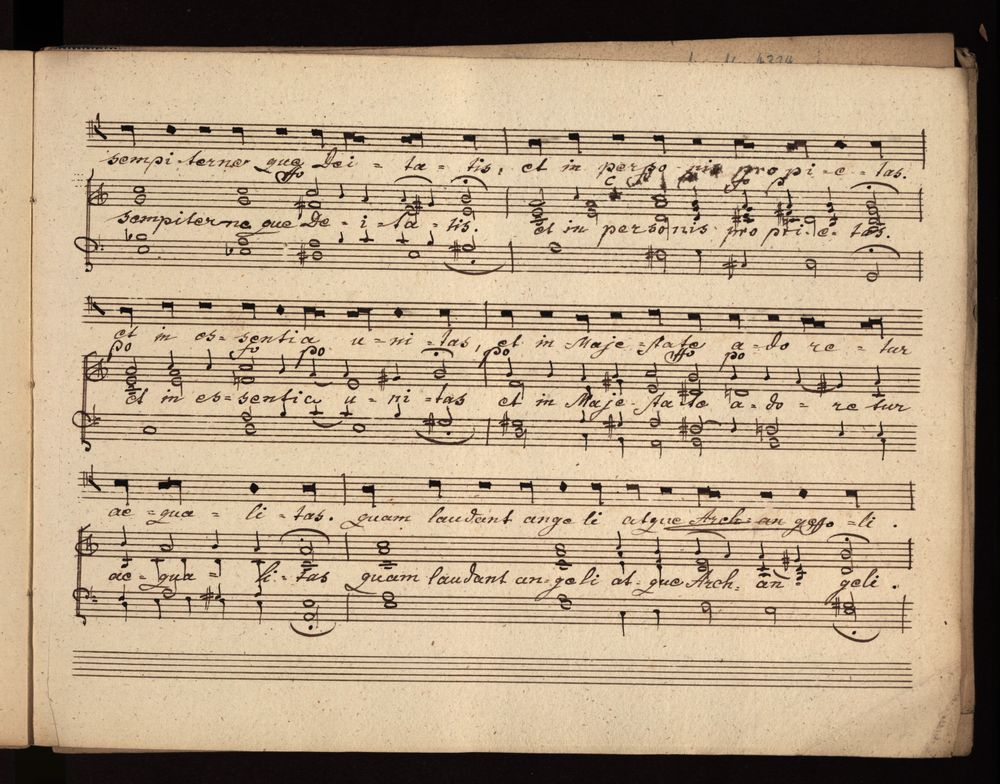 sempi-terne que Dei = ta = tis, et in perso nis pro pi = e = tas.
sempiterne que De = i = ta = tis. et in personis pro pri = e = tas.
et in es = sentia u = ni = tas, et in Maje = state a = do re = tur
po fo po po ffo po
et in es = sentia u = ni = tas et in Maje = state a = do = re tur
ae = qua = li = tas. quam laudant ange li atque Arch = an ge = li.
ae = qua = li = tas quam laudant an = geli at = que Arch = an geli.